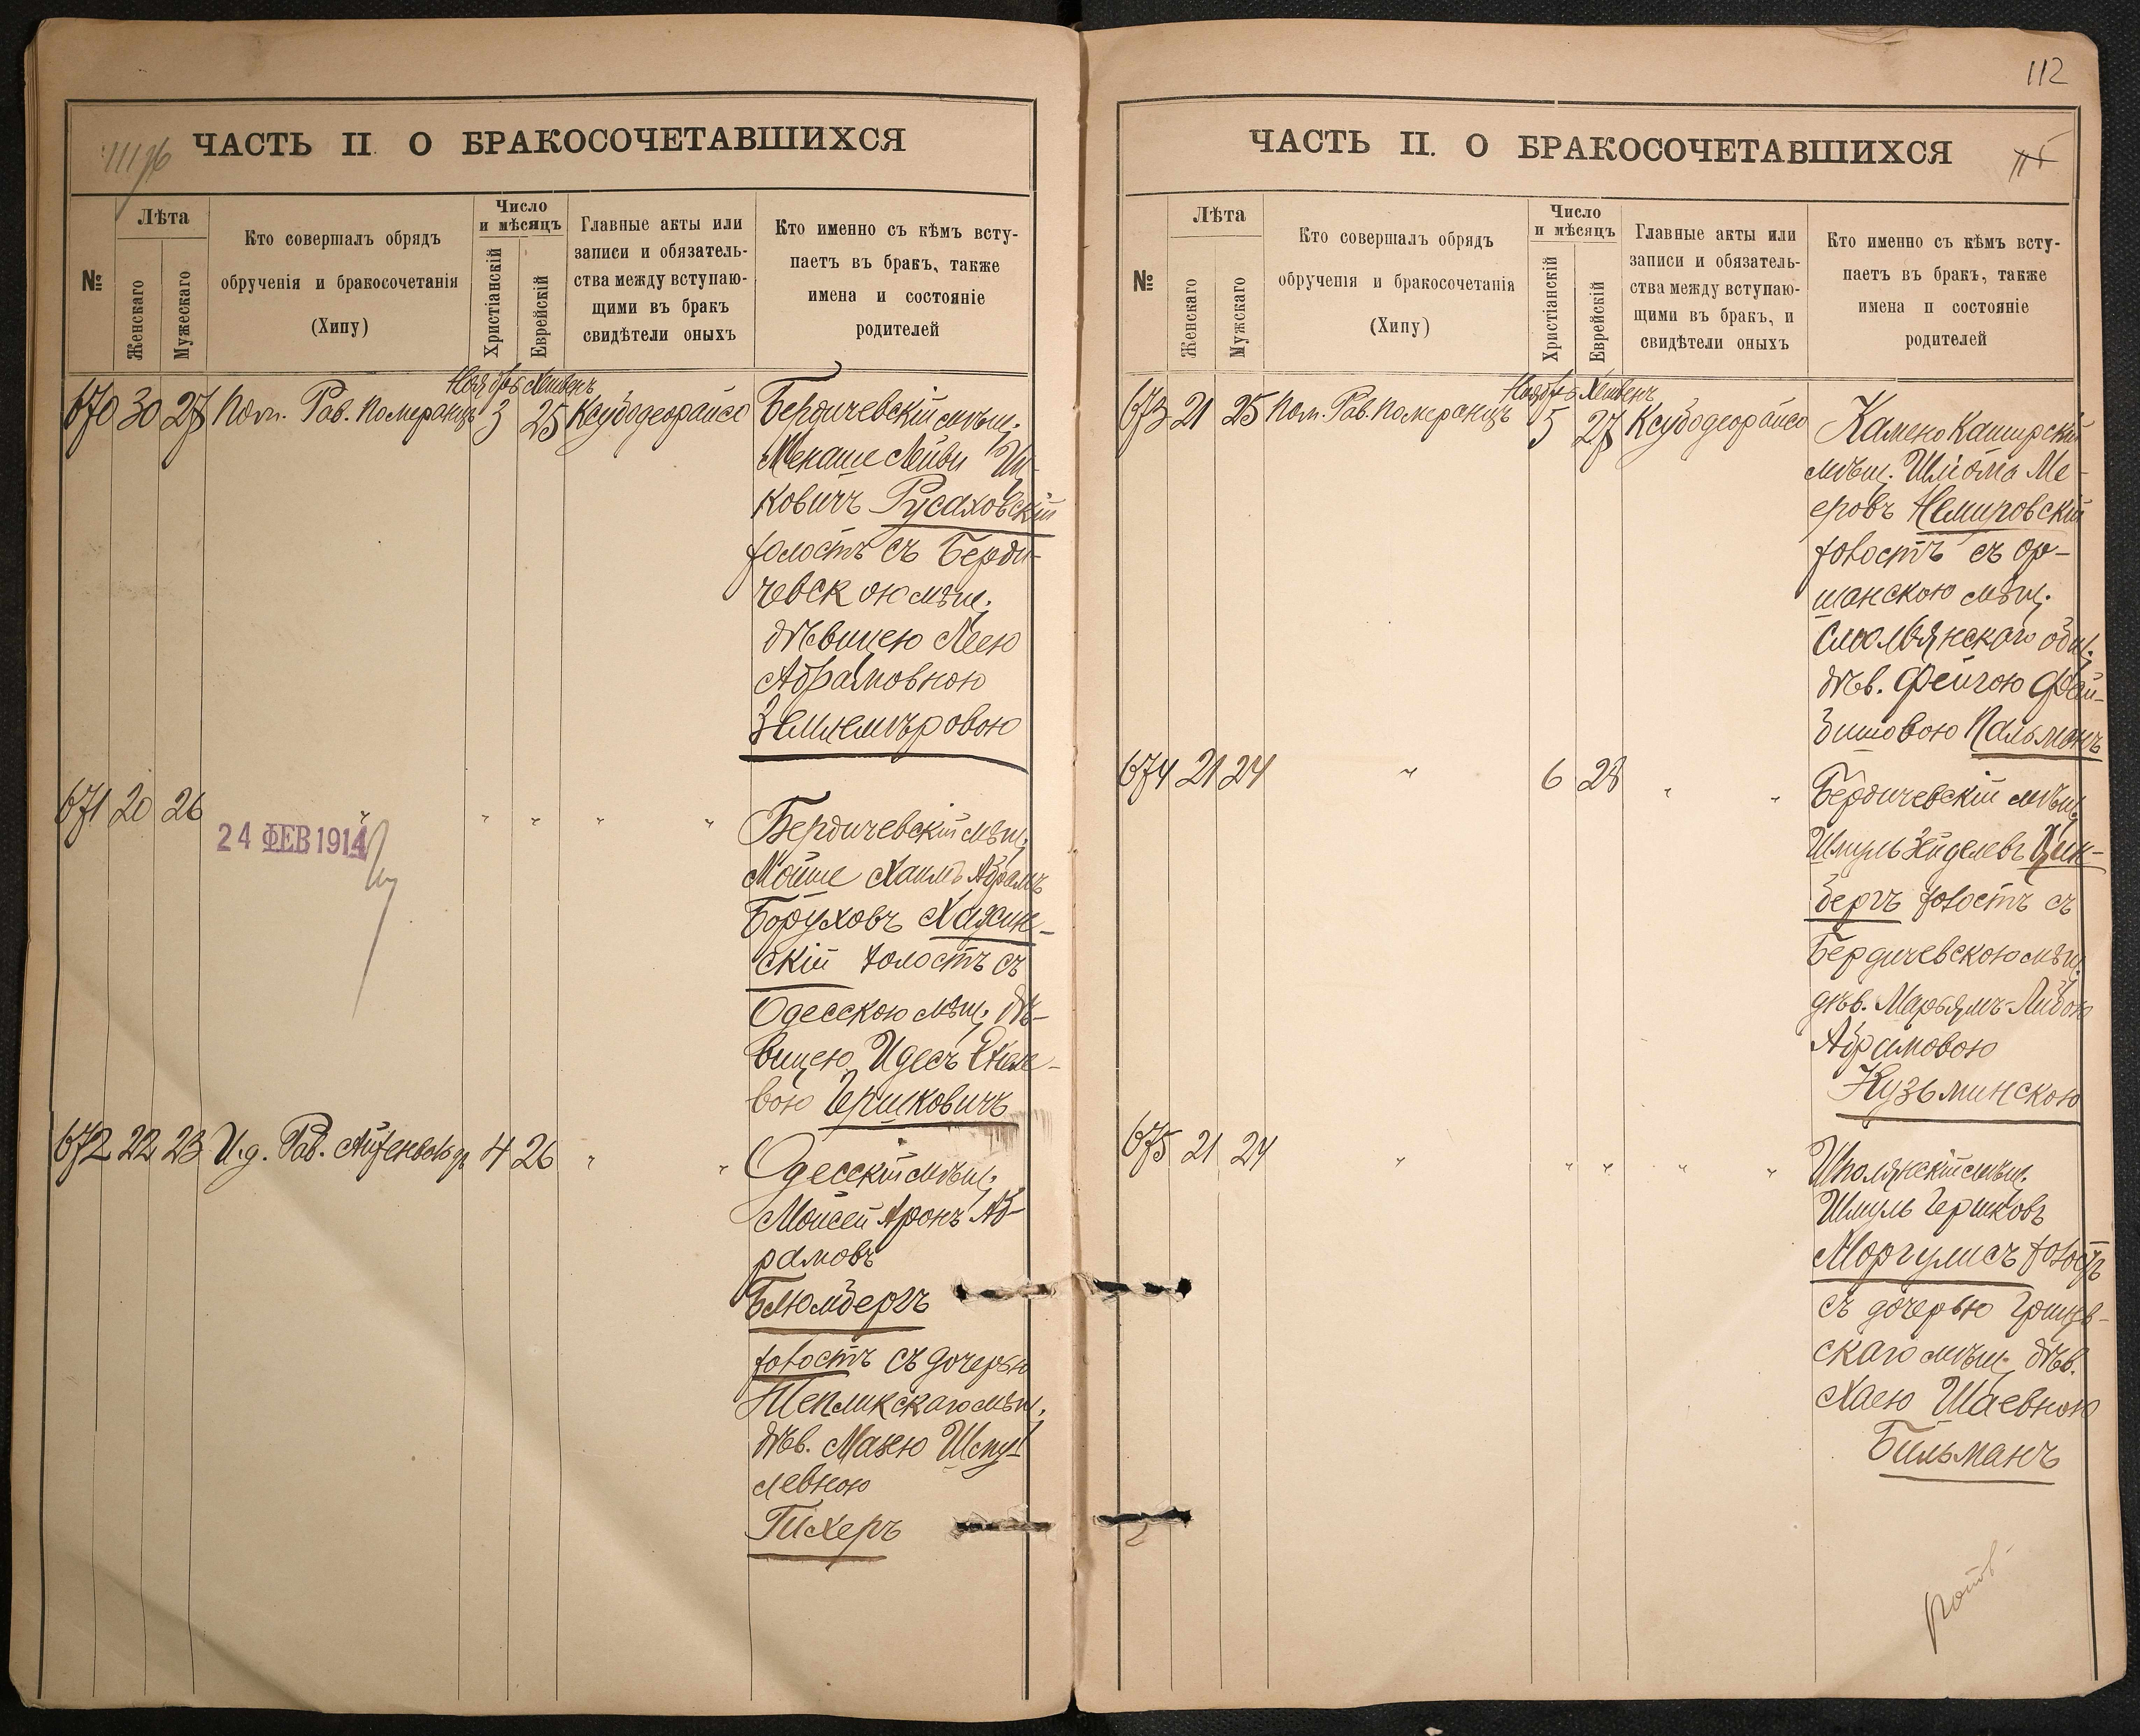 111 об
ЧАСТЬ II О БРАКОСОЧЕТАВШИХСЯ
№
Лѣта
Женскаго
Мужескаго
Кто совершалъ обрядъ
обрученія и бракосочетанія
(Хипу)
Число
и мѣсяцъ
Христіанскій
Еврейскій
Главные акты или
записи и обязатель-
ства между вступаю-
щими въ бракъ
свидѣтели оныхъ
Кто именно съ кѣмъ всту-
паетъ въ бракъ, также
имена и состояніе
родителей
Ноябрь Хешвенъ
670 30 27 Пом. Рав. Померанцъ 3 25 Ксубодеорайсо
Бердичевскій мѣщ.
Менаше Лейви Иц-
ковичъ Русаховскій
холостъ съ Берди-
чевскою мѣщ.
дѣвицею Леею
Абрамовною
Землемѣровою
671 20 26 " " " " "
24 ФЕВ 1914
Бердичевскій мѣщ.
Мойше Хаимъ Абрамъ
Боруховъ Хажин-
скій холостъ съ
Одесскою мѣщ. дѣ-
вицею Идесъ
вою Гершковичъ
672 22 23 И.д. Рав. Айзенвольдъ 4 26 " "
Одесскій мѣщ.
Моисей Аронъ Аб-
рамовъ
Блюмбергъ
холостъ съ дочерью
Тепликскаго мѣщ.
дѣв. Манею Шму-
левною
Тихеръ
112
ЧАСТЬ II. О БРАКОСОЧЕТАВШИХСЯ
№
Лѣта
Женскаго
Мужскаго
Кто совершалъ обрядъ
обрученія и бракосочетанія
(Хипу)
Число
и мѣсяцъ
Христіанскій
Еврейскій
Главные акты или
записи и обязатель-
ства между вступаю-
щими въ бракъ, и
свидѣтели оныхъ
Кто именно съ кѣмъ всту-
паетъ въ бракъ, также
имена и состояніе
родителей
Ноябрь Хешвенъ
673 21 25 Пом. Рав. Померанцъ 5 27 Ксубодеорайсо
Камено Каширскій
мѣщ. Шліома Ме-
еровъ Немировскій
холостъ съ Ор-
шанскою мѣщ.
Смольянскаго общ.
дѣв. Фейгою Фай-
бишовою Пальманъ
674 21 24 " 6 28 " "
Бердичевскій мѣщ.
Шмуль Зейделевъ Цин-
бергъ холостъ съ
Бердичевскою мѣщ.
дѣв. Марьямъ-Либою
Абрамовою
Кузьминскою
675 21 24 " " " " "
Шполянскій мѣщ.
Шмуль Гершковъ
Моргулисъ холостъ
съ дочерью Грицев-
скаго мѣщ. дѣв.
Хаею Шаевною
Бильманъ